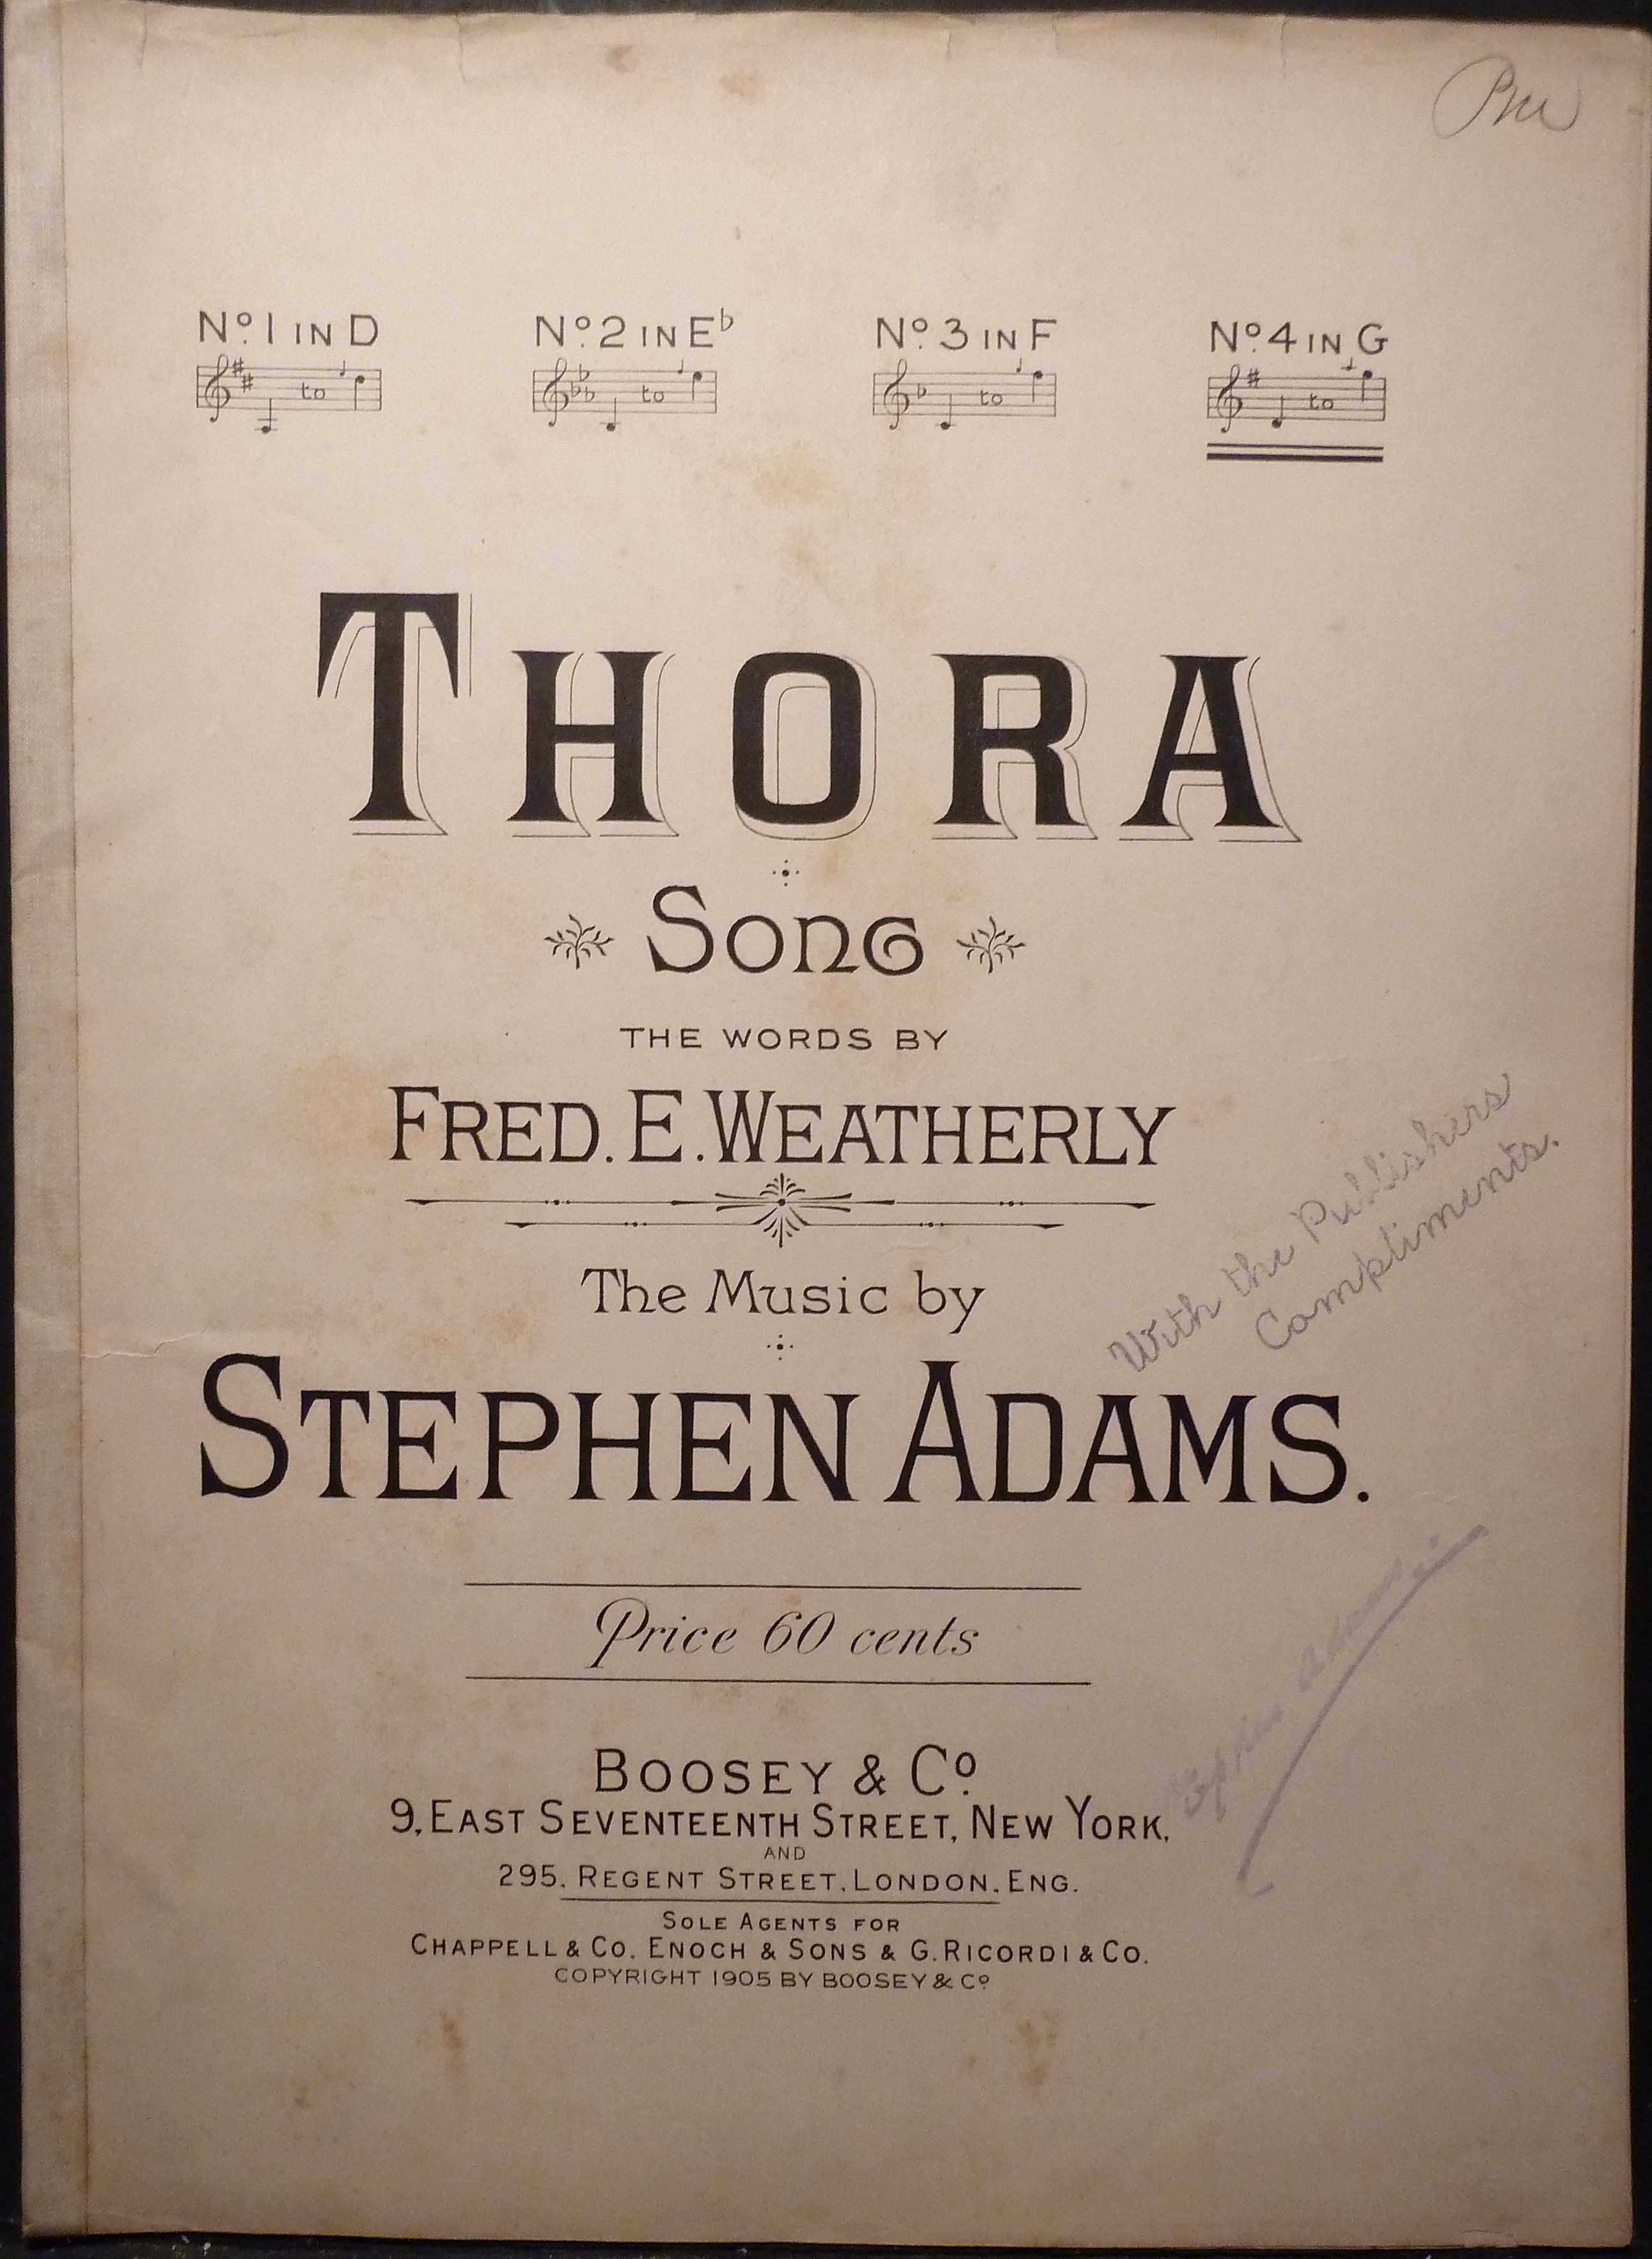 Nº 1 IN D
to
Nº 2 IN E♭
to
Nº 3 IN F
to
Nº 4 IN G
to
THORA
Song
THE WORDS BY
FRED. E. WEATHERLY
The Music by
STEPHEN ADAMS.
With the Publishers
Compliments.
Stephen Adams
Price 60 cents
BOOSEY & Cº
9, EAST SEVENTEENTH STREET, NEW YORK,
AND
295, REGENT STREET, LONDON, ENG.
SOLE AGENTS FOR
CHAPPELL & CO. ENOCH & SONS & G. RICORDI & CO.
COPYRIGHT 1905 BY BOOSEY & Cº